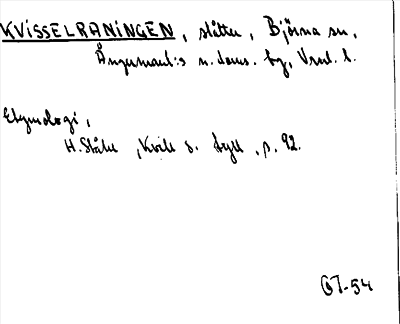 KVISSELRANINGEN, slåtter, Björna sn,
Ångermanl:s n. doms. bg, Vrnl. l.
Etymologi,
H. Ståhl, Kvill o. tyll, s. 92.
GT-54